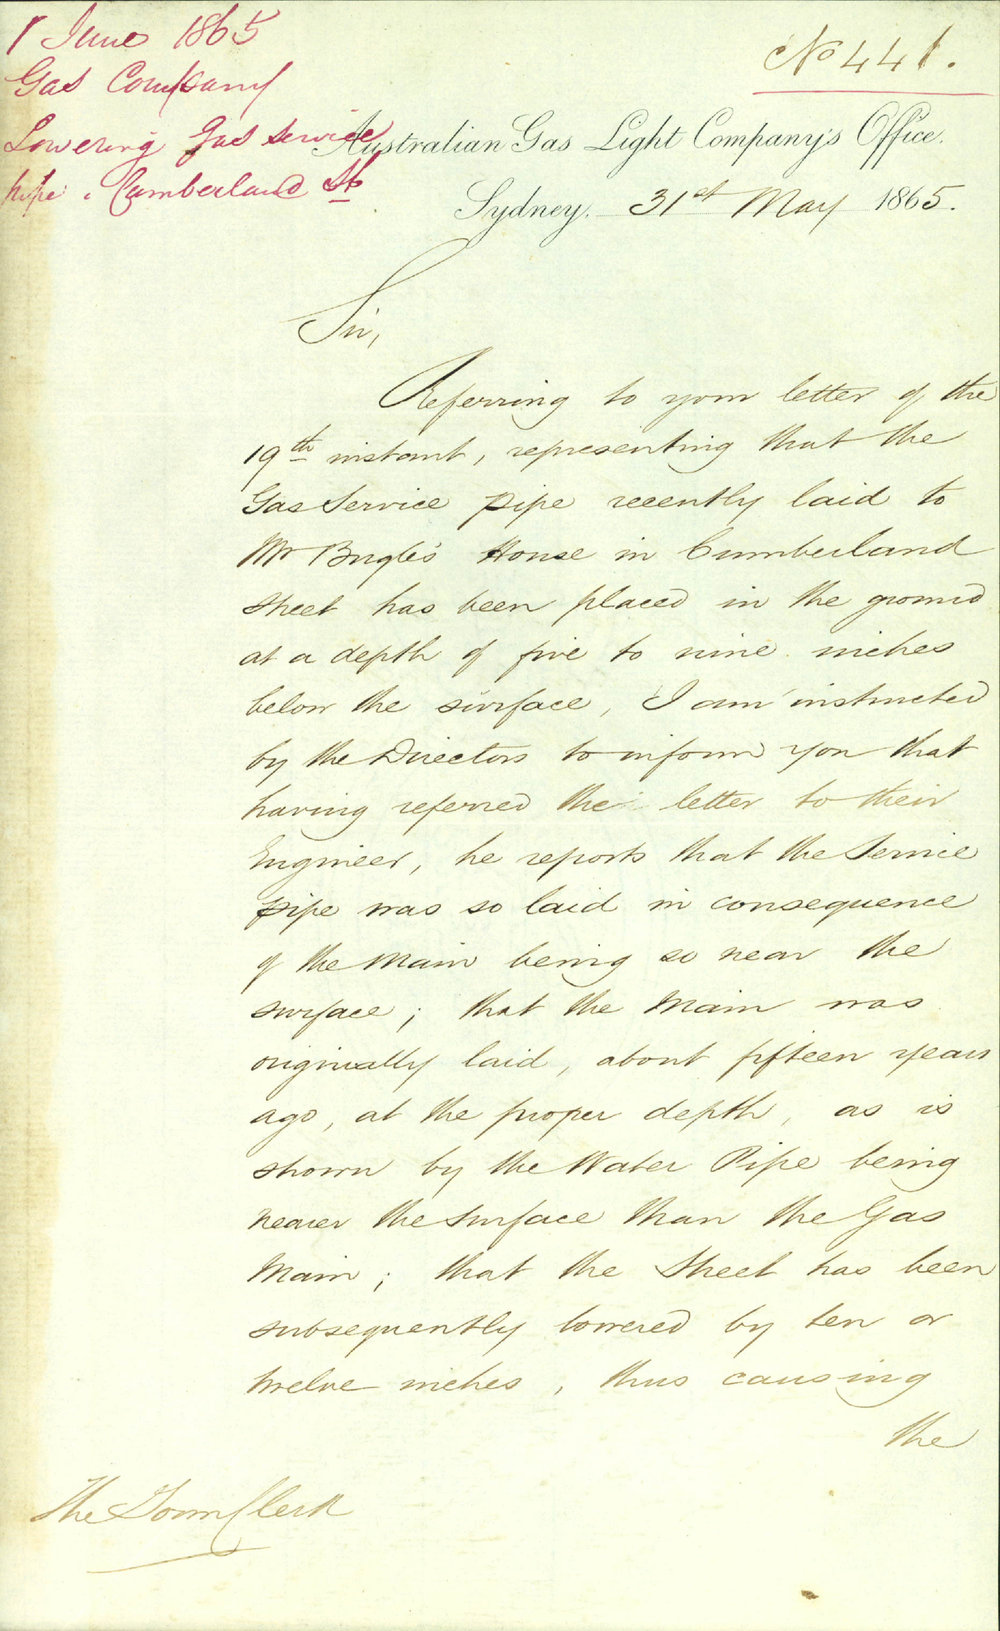 1 June 1865
Gas Company
Lowering Gas service
pipe. Cumberland St
No 441.
Australian Gas Light Company's Office.
Sydney. 31st May 1865.
Sir,
Referring to your letter of the
19th instant, representing that the
Gas Service pipe recently laid to
Mr House in Cumberland
Street has been placed in the ground
at a depth of five to nine inches
below the surface, I am instructed
by the Directors to inform you that
having referred the letter to their
Engineer, he reports that the Service
pipe was so laid in consequence
of the Main being so near the
surface; that the Main was
originally laid, about fifteen years
ago, at the proper depth, as is
shown by the Water Pipe being
nearer the surface than the Gas
Main; that the Street has been
subsequently lowered by ten or
twelve inches, thus causing
the
The Town Clerk